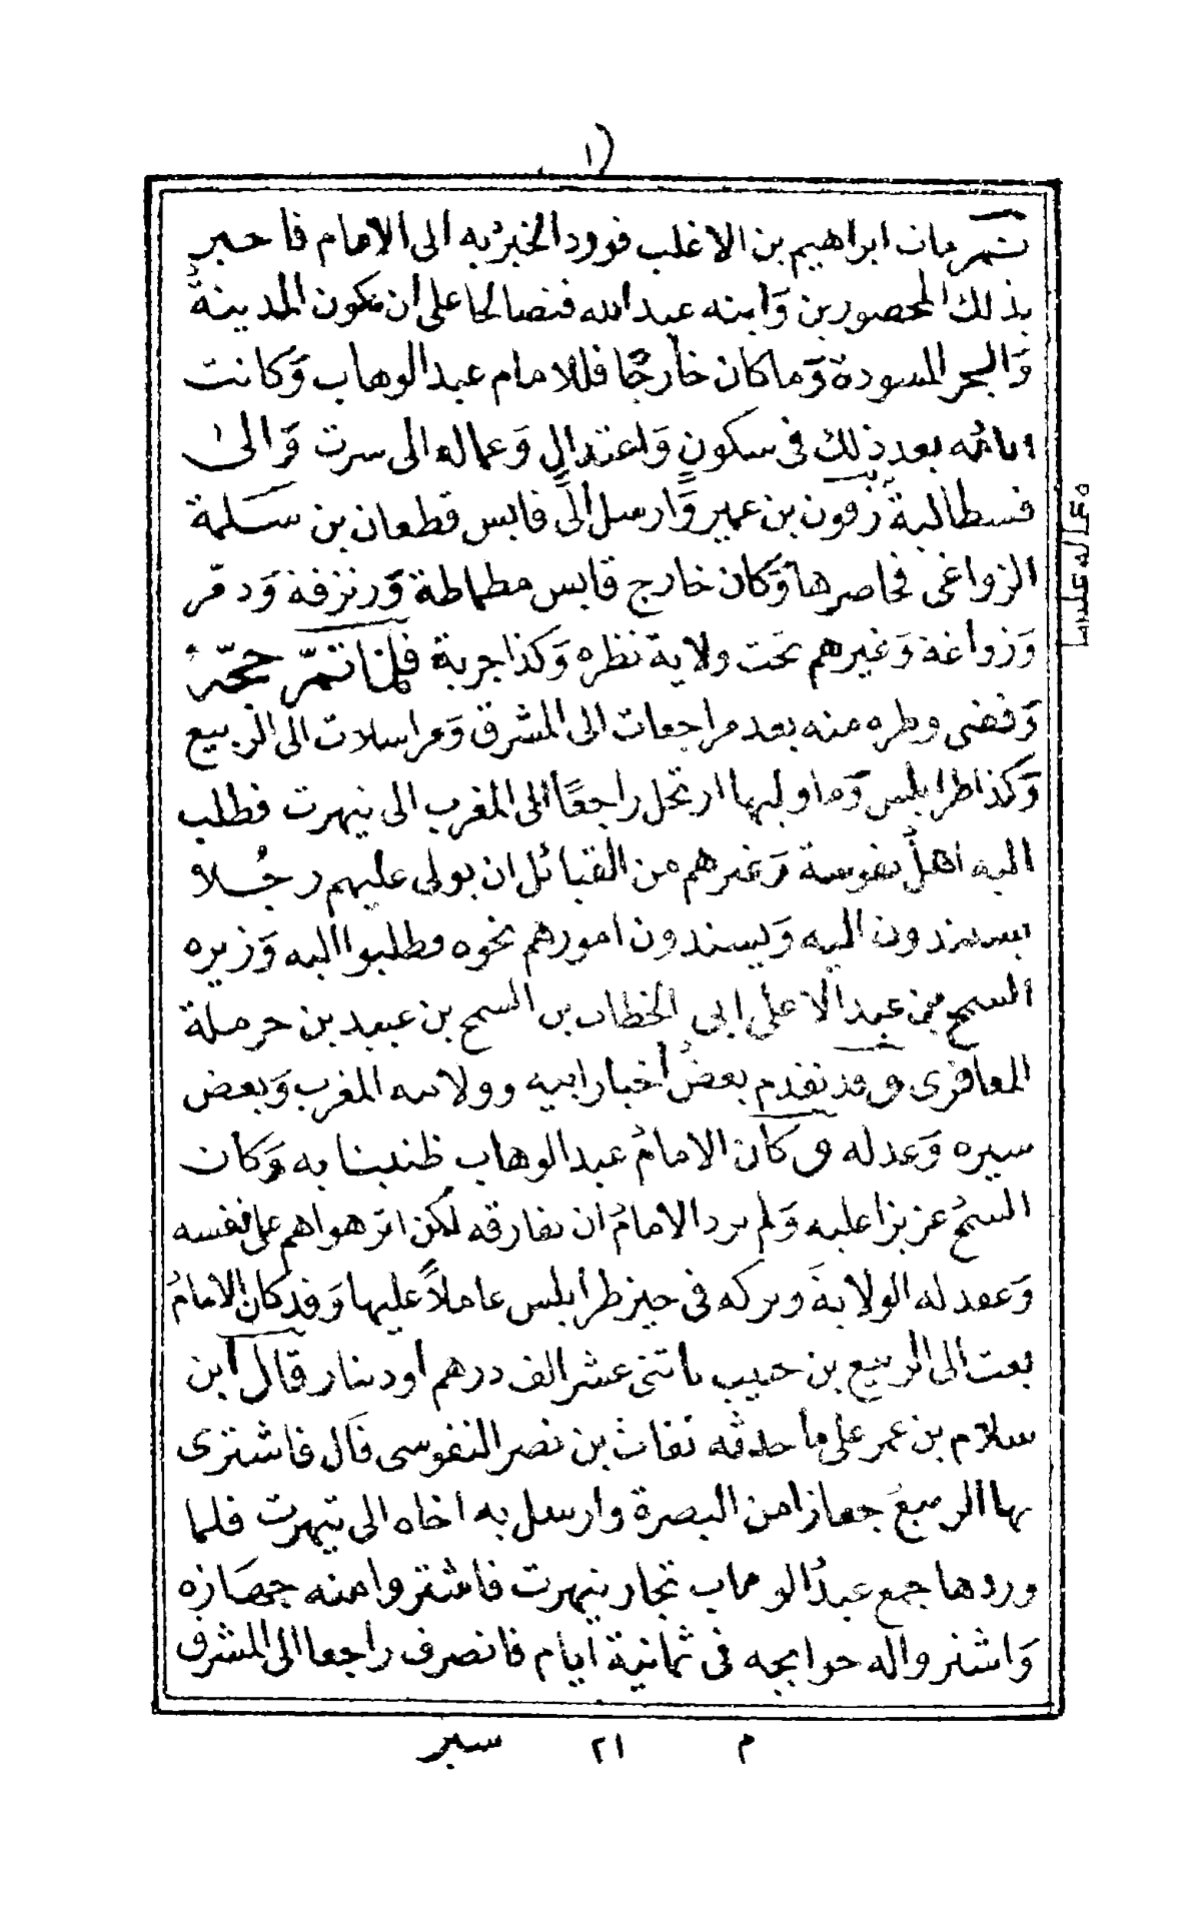 ثم مات ابراهيم بن الاغلب فورد الخبر به الى الامام فاخبر
بذلك المحصورين وَابنه عبد الله فتصالحا على ان تكون المدينةُ
وَالبحر للمسودة وَما كان خارجًا فللامام عبد الوهاب وَكانت
ايامه بعد ذلك فى سكون وَاعتدال وَعماله الى سرت وَالى
قسطالية زقون بن عمير وَارسل الى قابس قطعان بن سلمة
الزواغى فحاصرها وَكان خارج قابس مطماطة وَزنزفة وَدمّر
وَزواغة وَغيرهم تحت ولاية نظره وَكذا جربة فلما تمّ حجّهُ
وَقضى وطره منه بعد مراجعات الى المشرق وَمراسلات الى الربيع
وَكذا طرابلس وَما وليها ارتحل راجعًا الى المغرب الى تيهرت فطلب
اليه اهلُ نفوسة وَغيرهم من القبائل ان يولى عليهم رجُلا
يستندون اليه وَيسندون امورهم نحوه وطلبوا اليه وَزيره
السمح بن عبد الاعلى ابى الخطاب بن السمح بن عبيد بن حرملة
المعافرى وقد تقدم بعضُ اخبار ابيه وولايته المغرب وَبعض
سيره وَعدله وكان الامامُ عبد الوهاب ظنينا به وَكان
السمحُ عزيزا عليه وَلم يرد الامامُ ان يفارقه لكن اثر هواهم على نفسه
وَعقد له الولايةَ وتركه فى حيز طرابلس عاملاً عليها وَقد كان الامامُ
بعث الى الربيع بن حبيب باثنى عشر الف درهم او دينار قال ابن
سلام بن عمر على ما حدثه نفاث بن نصر النفوسى قال فاشترى
بها الربيعُ جهازا من البصرة وارسل به اخاه الى تيهرت فلما
وردها جمع عبدُ الوهاب تجار تيهرت فاشتروا منه جهازه
وَاشتروا له حوايجه فى ثمانية ايام فانصرف راجعا الى المشرق
م ٢١ سير